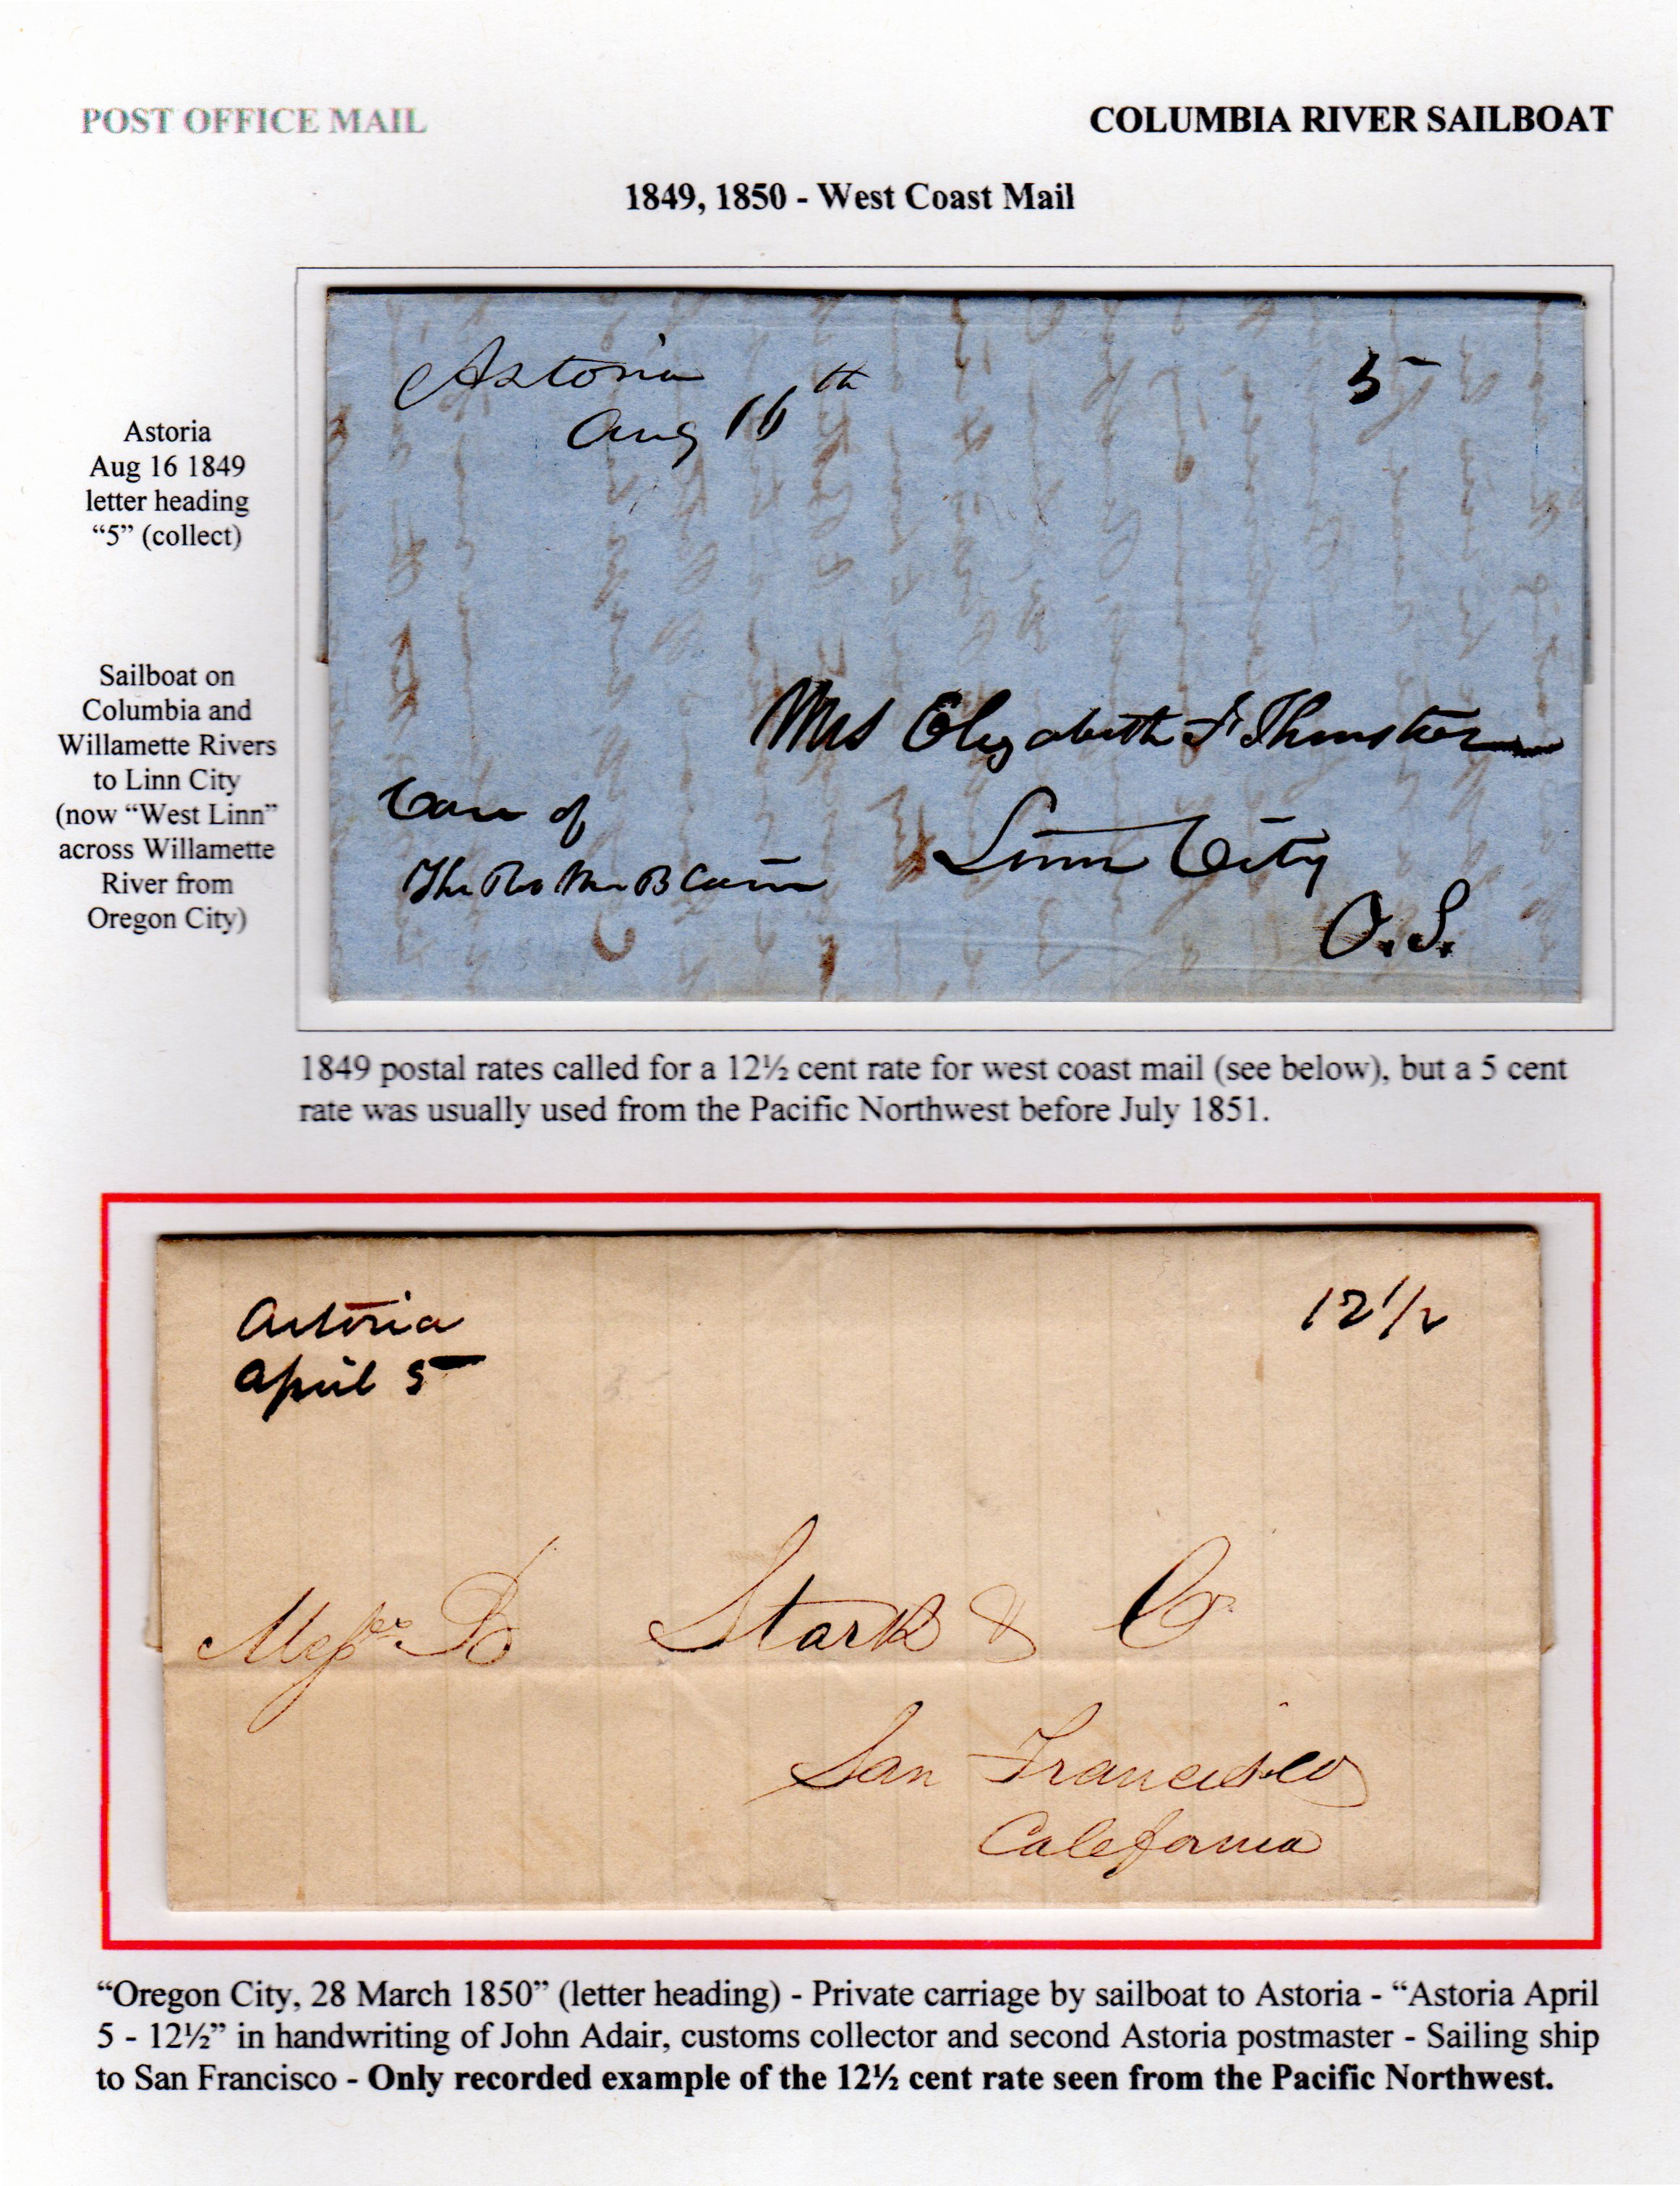 POST OFFICE MAIL
COLUMBIA RIVER SAILBOAT
1849, 1850 - West Coast Mail
Astoria
Aug 16 1849
letter heading
“5” (collect)
Sailboat on
Columbia and
Willamette Rivers
to Linn City
(now “West Linn”
across Willamette
River from
Oregon City)
Astoria
Aug 16th
5
Mrs Elizabeth F Thurston
Care of
The Rev Mr Blain
Linn City
O.
1849 postal rates called for a 12½ cent rate for west coast mail (see below), but a 5 cent
rate was usually used from the Pacific Northwest before July 1851.
Astoria
April 5
12 1/2
Messrs B Stark & Co
San Francisco
California
“Oregon City, 28 March 1850” (letter heading) - Private carriage by sailboat to Astoria - “Astoria April
5 - 12½” in handwriting of John Adair, customs collector and second Astoria postmaster - Sailing ship
to San Francisco - Only recorded example of the 12½ cent rate seen from the Pacific Northwest.